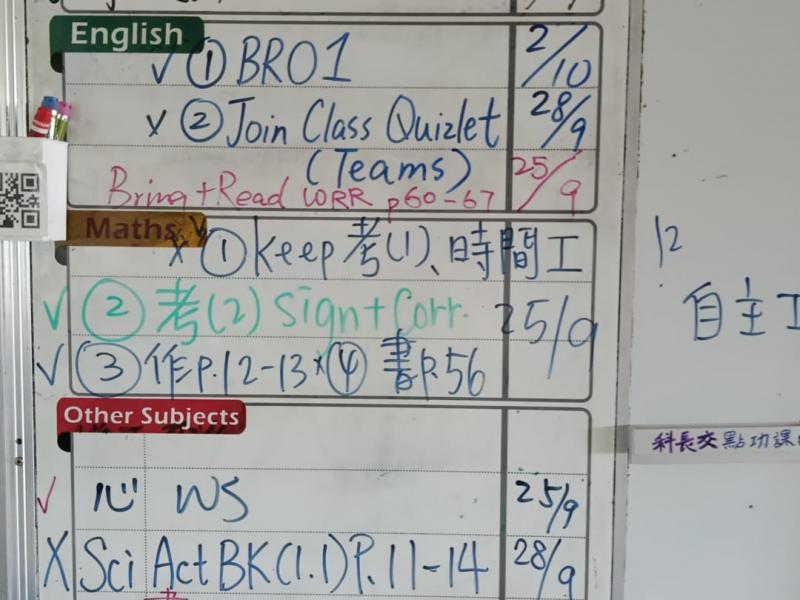 English
✓ ① BRO1 2/10
x ② Join Class Quizlet 28/9
(Teams)
Bring + Read WRR p60-67 25/9
Maths
x ① Keep 考(1)、時間工
✓ ② 考(2) Sign + Corr. 25/9
✓ ③ 作p.12-13 x ④ 書p.56
Other Subjects
✓ 心 WS 25/9
X Sci Act BK (1.1) P.11-14 28/9
12
自主工
科長交點功課